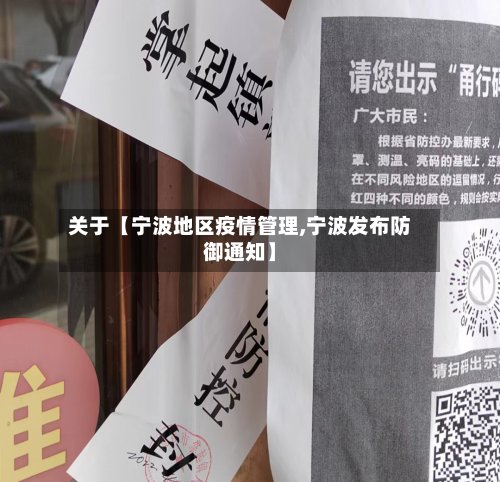 掌起镇
请您出示“甬行码
广大市民：
根据省防控办最新要求，
罩、测温、亮码的基础上，还
在不同风险地区的逗留情况，行
红四种不同的颜色，规则会按实
关于【宁波地区疫情管理,宁波发布防
御通知】
防控
请扫码出示
封
准